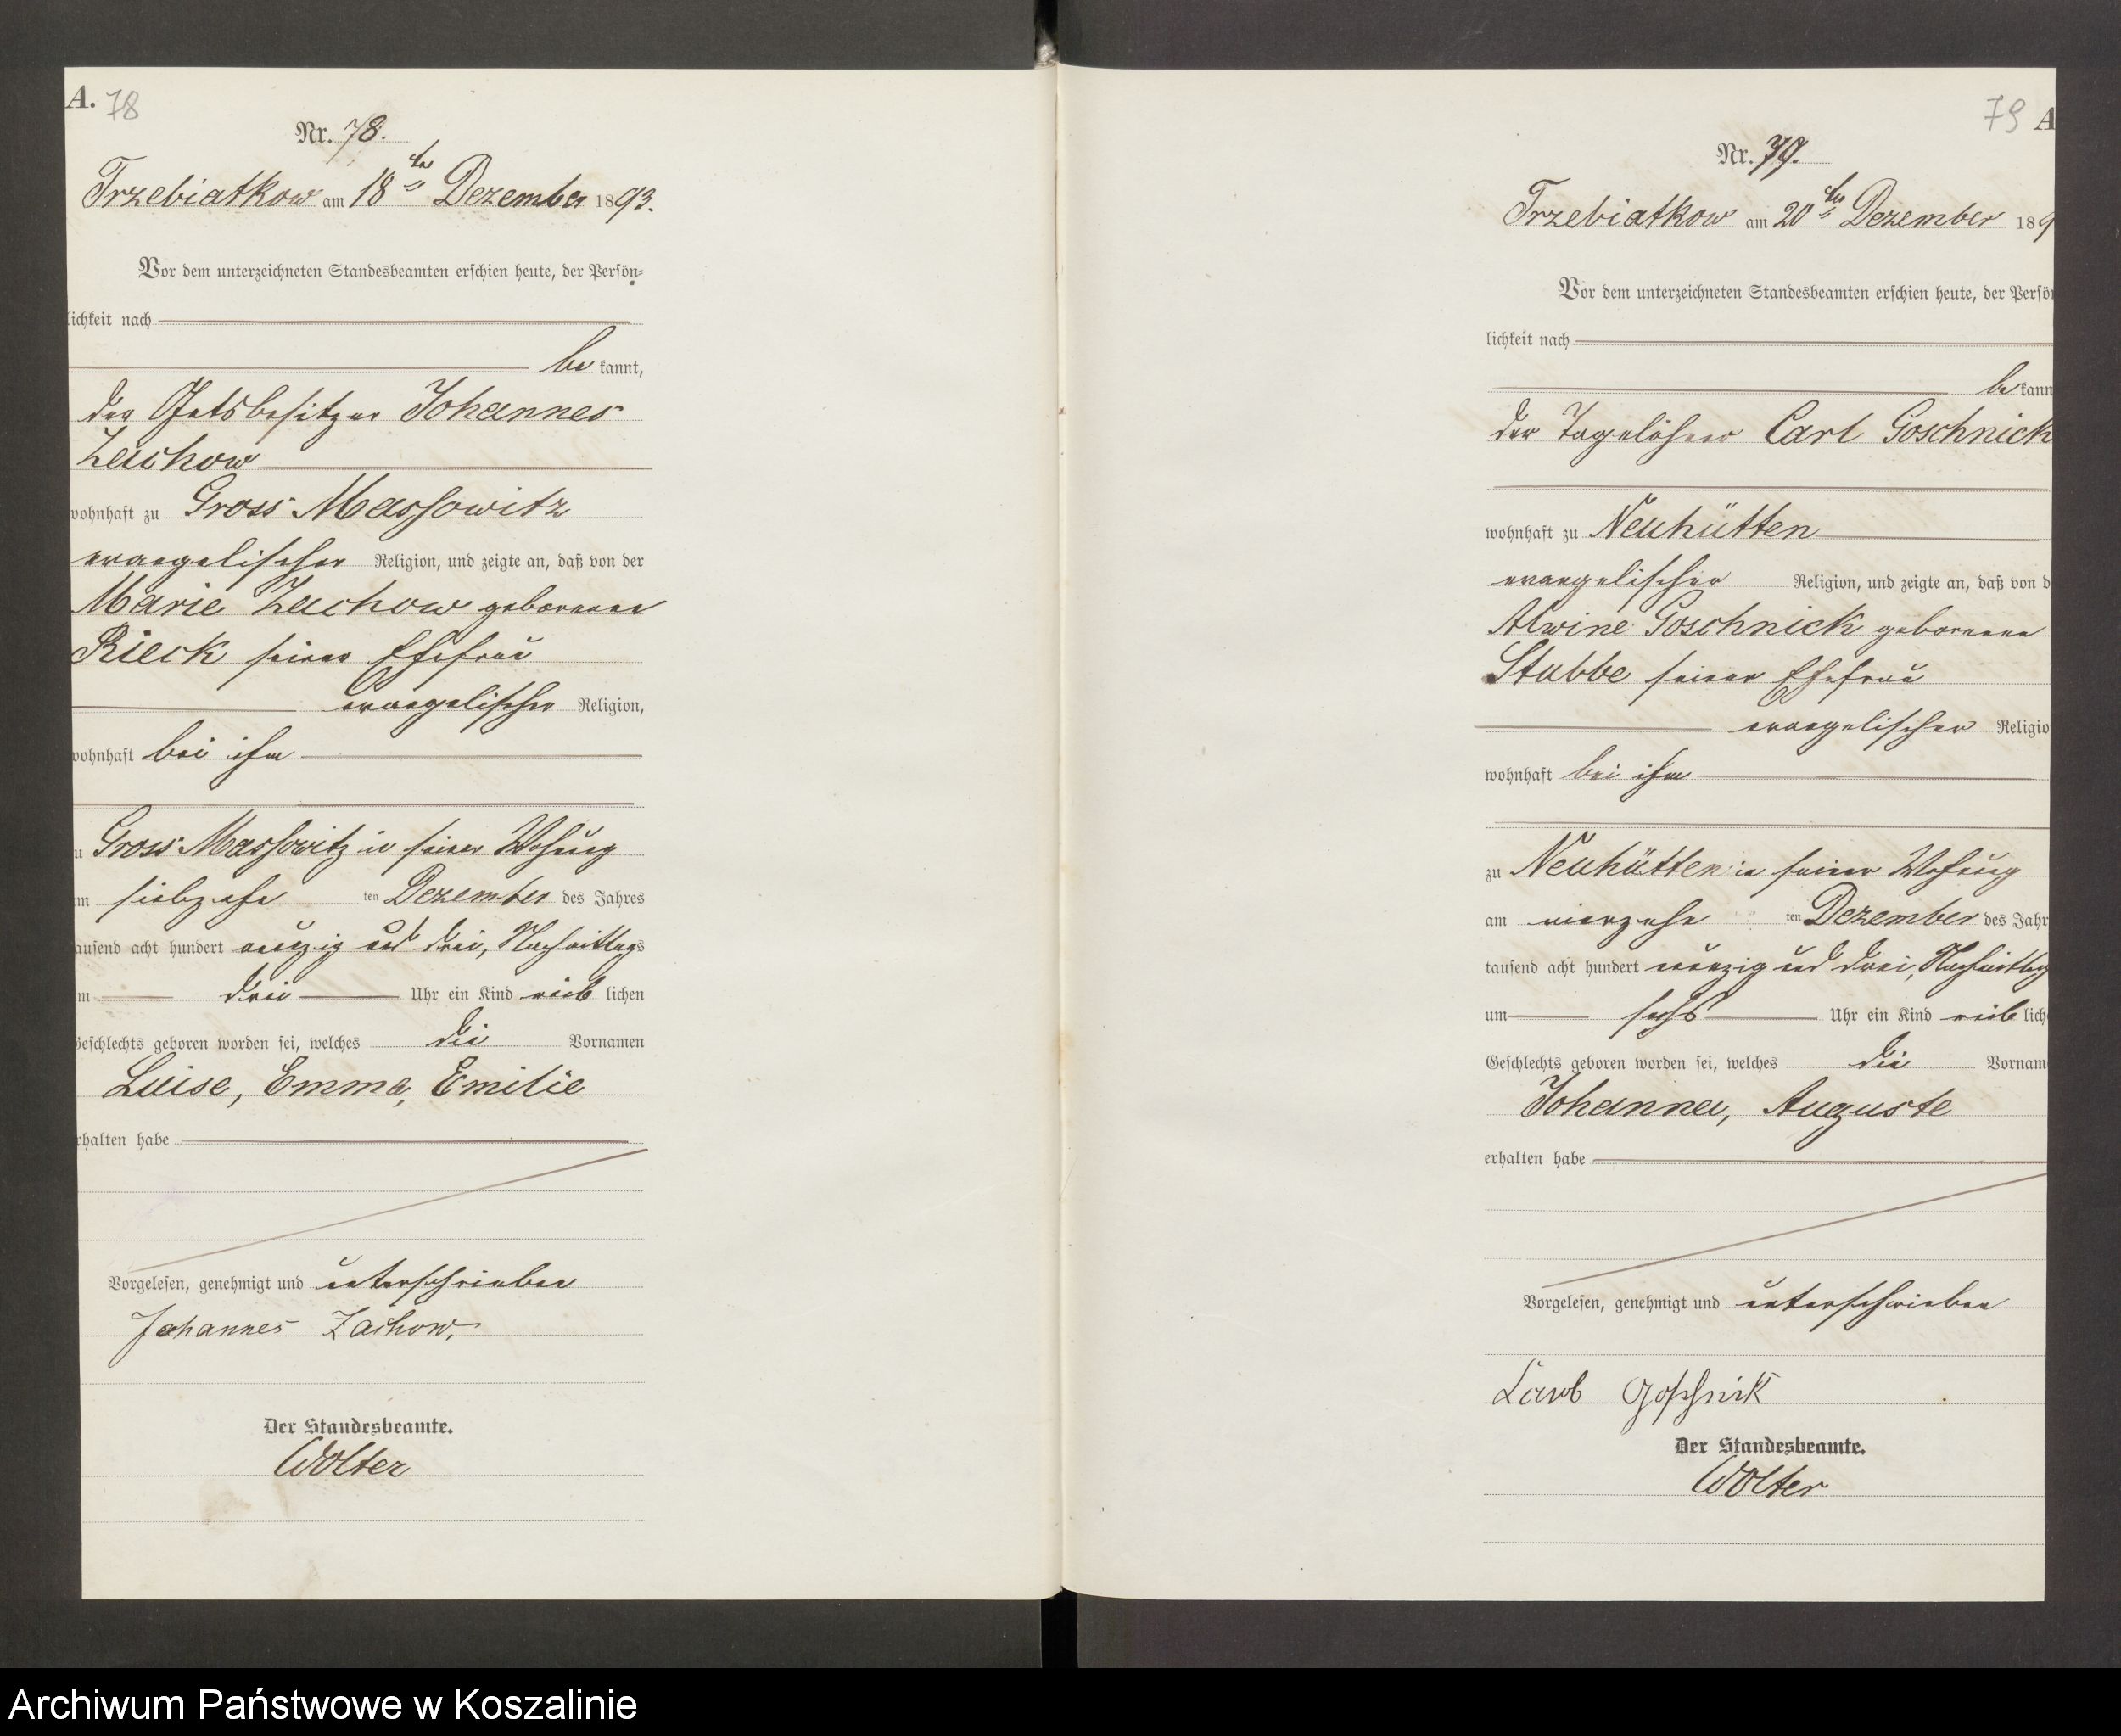 A. 78
Nr. 78.
Trzebiatkow am 18ten Dezember 1893.
Vor dem unterzeichneten Standesbeamten erschien heute, der Persön-
lichkeit nach
be kannt,
der Gutsbesitzer Johannes
Zachow
wohnhaft zu Gross Massowitz
evangelischer Religion, und zeigte an, daß von der
Marie Zachow geborenen
Rieck seiner Ehefrau
evangelischer Religion,
wohnhaft bei ihm
zu Gross Massowitz in seiner Wohnung
am siebzehn ten Dezember des Jahres
tausend acht hundert neunzig und drei, Nachmittags
um drei Uhr ein Kind weib lichen
Geschlechts geboren worden sei, welches die Vornamen
Luise, Emma, Emilie
erhalten habe
Vorgelesen, genehmigt und unterschrieben
Johannes Zachow.
Der Standesbeamte.
Wolter
79 A
Nr. 79.
Trzebiatkow am 20ten Dezember 189
Vor dem unterzeichneten Standesbeamten erschien heute, der Persön
lichkeit nach
be kann
der Tagelöhner Carl Goschnick
wohnhaft zu Neuhütten
evangelischer Religion, und zeigte an, daß von d
Alwine Goschnick geborenen
Stubbe seiner Ehefrau
evangelischer Religio
wohnhaft bei ihm
zu Neuhütten in seiner Wohnung
am vierzehn ten Dezember des Jahr
tausend acht hundert neunzig und drei, Nachmittag
um sechs Uhr ein Kind weib lich
Geschlechts geboren worden sei, welches die Vornam
Johanna, Auguste
erhalten habe
Vorgelesen, genehmigt und unterschrieben
Carl Goschnick
Der Standesbeamte.
Wolter
Archiwum Państwowe w Koszalinie